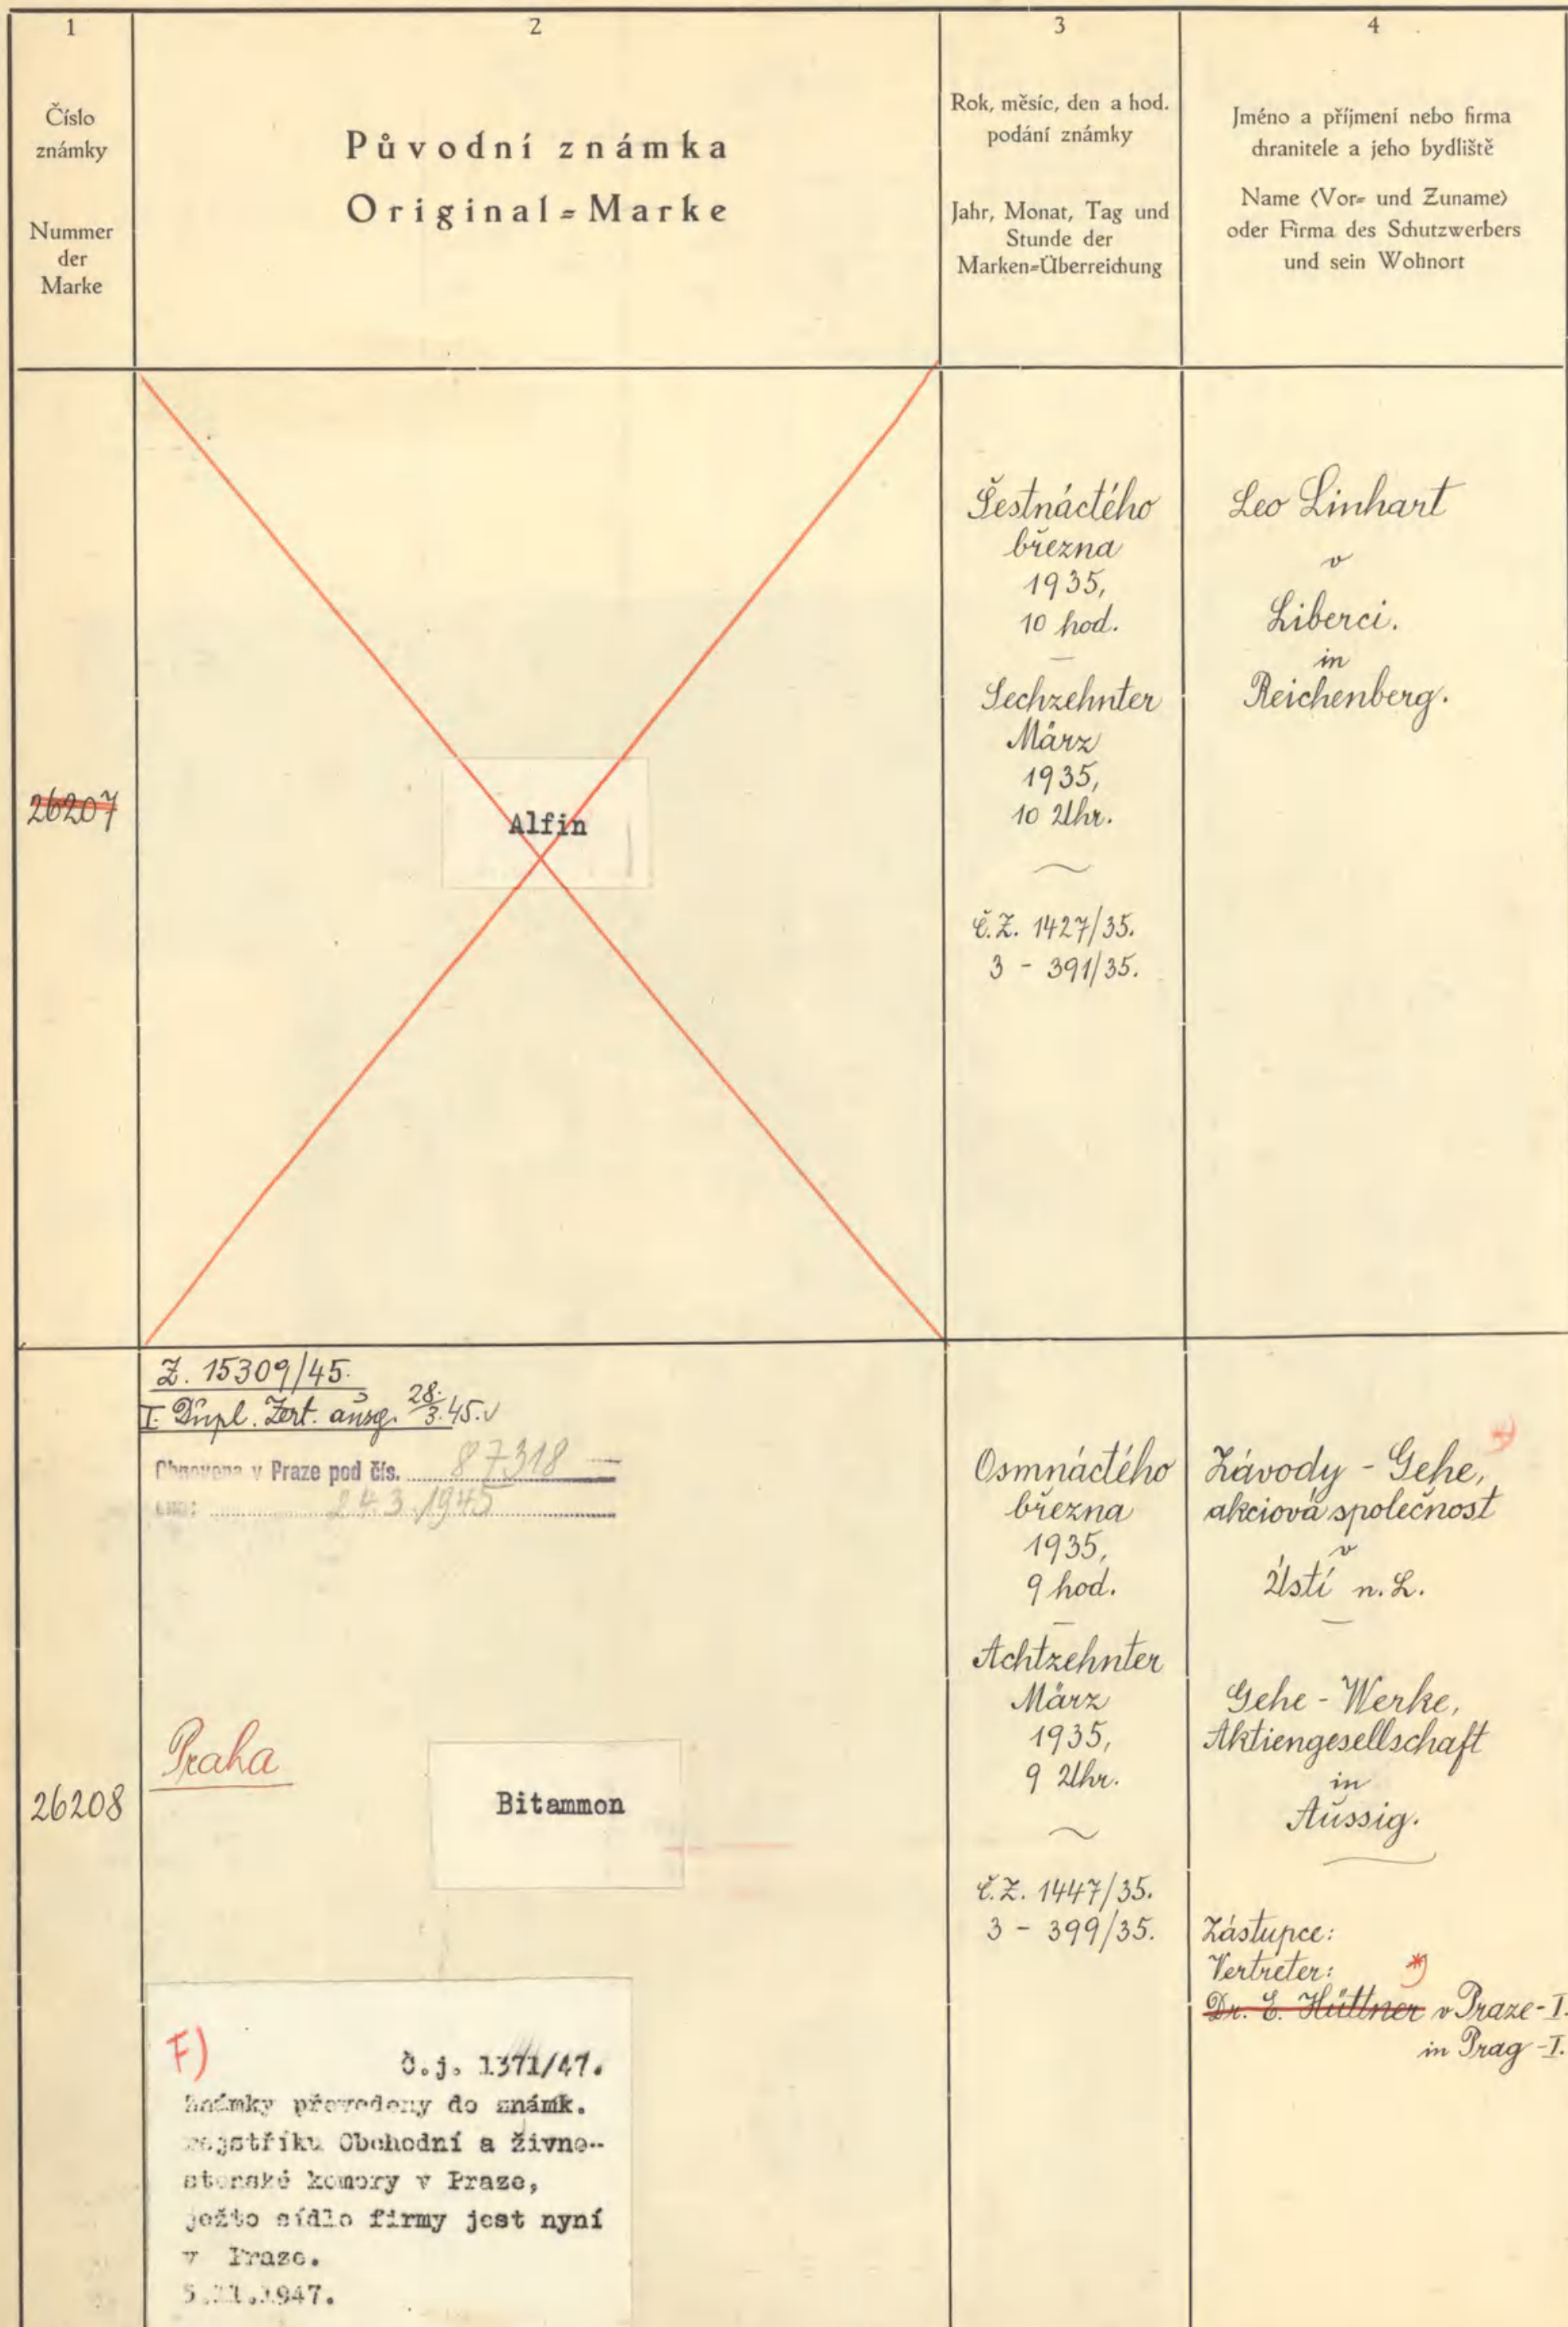 1
Číslo
známky
Nummer
der
Marke
2
Původní známka
Original=Marke
3
Rok, měsíc, den a hod.
podání známky
Jahr, Monat, Tag und
Stunde der
Marken=Überreichung
4
Jméno a příjmení nebo firma
chranitele a jeho bydliště
Name (Vor= und Zuname)
oder Firma des Schutzwerbers
und sein Wohnort
26207
Alfin
Šestnáctého
března
1935,
10 hod.
Sechzehnter
März
1935,
10 Uhr.
Č.Z. 1427/35.
3 - 391/35.
Leo Linhart
v
Liberci.
in
Reichenberg.
26208
Z. 15309/45.
I. Dupl. Zert. ausg. 28./3.45.
Obnovena v Praze pod čís. 87318 —
24.3.1945
Praha
Bitammon
F)
Č.j. 1371/47.
Známky převedeny do známk.
rejstříku Obchodní a živno-
stenské komory v Praze,
ježto sídlo firmy jest nyní
v Praze.
5.11.1947.
Osmnáctého
března
1935,
9 hod.
Achtzehnter
März
1935,
9 Uhr.
Č.Z. 1447/35.
3 - 399/35.
Závody - Gehe,
akciová společnost
v
Ústí n. L.
Gehe - Werke,
Aktiengesellschaft
in
Aussig.
Zástupce:
Vertreter: *)
Dr. E. Hüttner v Praze - I.
in Prag - I.